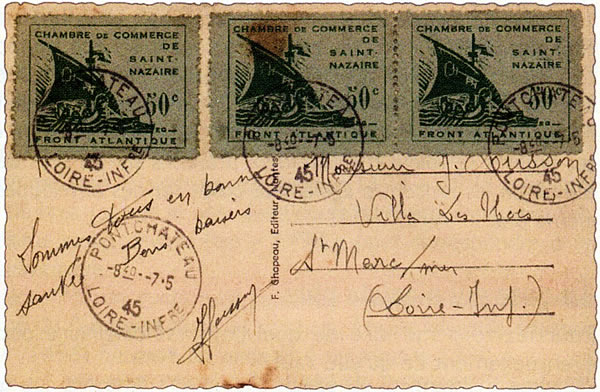 CHAMBRE DE COMMERCE
DE
SAINT-
NAZAIRE
50c
FRONT ATLANTIQUE
CHAMBRE DE COMMERCE
DE
SAINT-
NAZAIRE
50c
FRONT ATLANTIQUE
CHAMBRE DE COMMERCE
DE
SAINT-
NAZAIRE
50c
FRONT ATLANTIQUE
PONTCHATEAU
-840--7-5
45
LOIRE-INFRE
PONTCHATEAU
-840--7-5
45
LOIRE-INFRE
PONTCHATEAU
-840--7-5
45
LOIRE-INFRE
Sommes tous en bonne
santé Bons baisers
PONTCHATEAU
-840--7-5
45
LOIRE-INFRE
F. Chapeau, Editeur, Nantes
Monsieur J.
Villa Les
St Marc/mer
(Loire-Inf.)